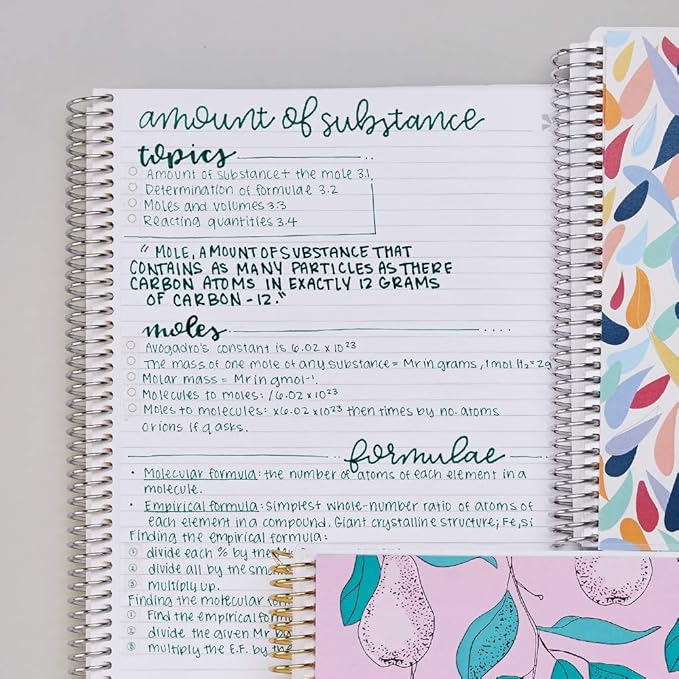 amount of substance
topics
Amount of substance + the mole 3.1
Determination of formulae 3.2
Moles and volumes 3.3
Reacting quantities 3.4
"MOLE, AMOUNT OF SUBSTANCE THAT
CONTAINS AS MANY PARTICLES AS THERE
CARBON ATOMS IN EXACTLY 12 GRAMS
OF CARBON-12."
moles
Avogadro's constant is 6.02 x 10²³
The mass of one mole of any substance = Mr in grams, 1mol H₂ = 2g
Molar mass = Mr in gmol⁻¹.
Molecules to moles: /6.02 x 10²³
Moles to molecules: x6.02 x 10²³ then times by no. atoms
or ions if q asks.
formulae
• Molecular formula: the number of atoms of each element in a
molecule.
• Empirical formula: simplest whole-number ratio of atoms of
each element in a compound. Giant crystalline structure; Fe, Si
Finding the empirical formula:
① divide each % by the
② divide all by the
③ multiply up.
Finding the molecular
① Find the empirical
② divide the given Mr by
③ multiply the E.F. by the